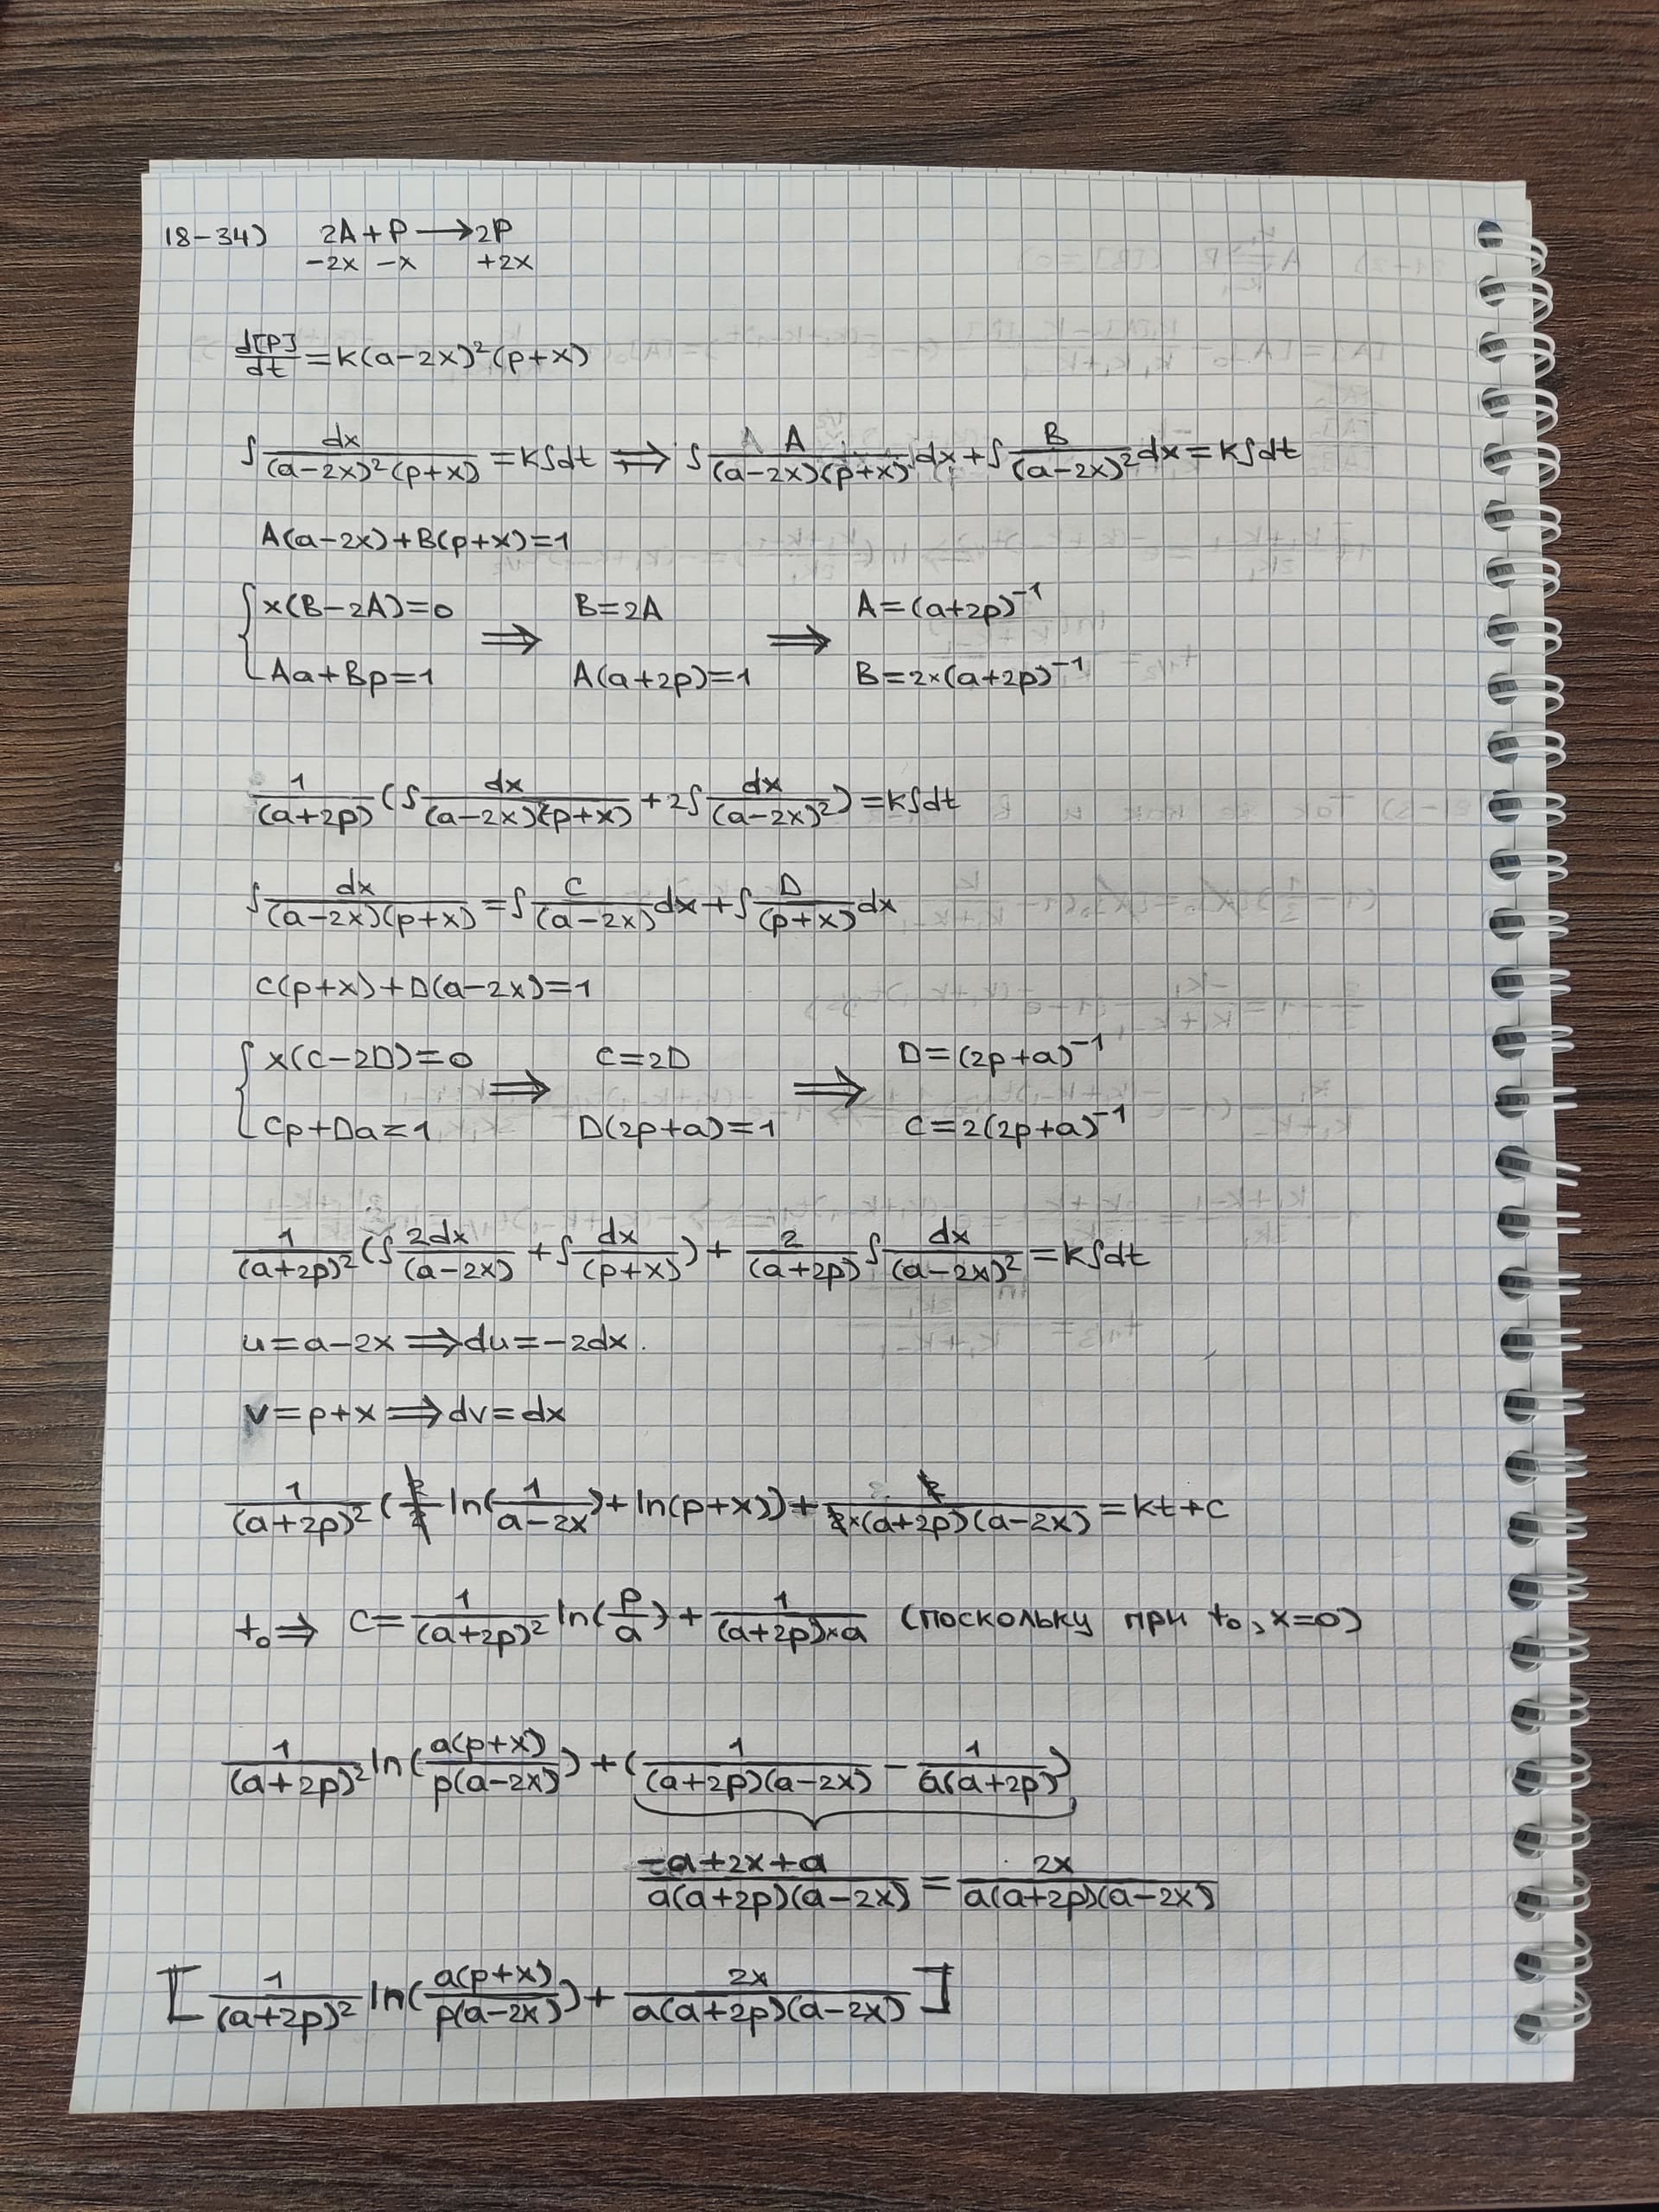 18-34) 2A + P ⟶ 2P
-2x -x +2x
d[P]/dt = k(a-2x)²(p+x)
∫ dx/((a-2x)²(p+x)) = k∫dt ⟹ ∫ A/((a-2x)(p+x)) dx + ∫ B/(a-2x)² dx = k∫dt
A(a-2x)+B(p+x)=1
{ x(B-2A)=0 ⟹ B=2A ⟹ A=(a+2p)⁻¹
Aa+Bp=1 A(a+2p)=1 B=2×(a+2p)⁻¹
1/(a+2p) (∫ dx/((a-2x)(p+x)) + 2∫ dx/(a-2x)²) = k∫dt
∫ dx/((a-2x)(p+x)) = ∫ C/(a-2x) dx + ∫ D/(p+x) dx
C(p+x)+D(a-2x)=1
{ x(C-2D)=0 ⟹ C=2D ⟹ D=(2p+a)⁻¹
Cp+Da=1 D(2p+a)=1 C=2(2p+a)⁻¹
1/(a+2p)² (∫ 2dx/(a-2x) + ∫ dx/(p+x)) + 2/(a+2p) ∫ dx/(a-2x)² = k∫dt
u=a-2x ⟹ du=-2dx.
v=p+x ⟹ dv=dx
1/(a+2p)² (2/2 ln(1/(a-2x)) + ln(p+x)) + 2/(2×(a+2p)(a-2x)) = kt+c
t₀ ⟹ C = 1/(a+2p)² ln(p/a) + 1/((a+2p)×a) (поскольку при t₀, x=0)
1/(a+2p)² ln(a(p+x)/(p(a-2x))) + (1/((a+2p)(a-2x)) - 1/(a(a+2p)))
(-a+2x+a)/(a(a+2p)(a-2x)) = 2x/(a(a+2p)(a-2x))
[1/(a+2p)² ln(a(p+x)/(p(a-2x))) + 2x/(a(a+2p)(a-2x))]